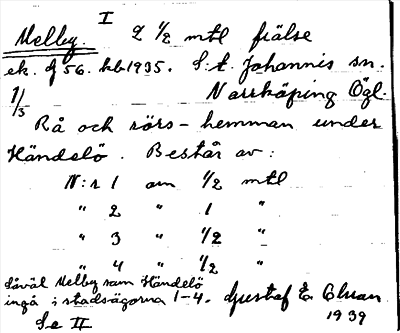 I
Melby. 2 1/2 mtl frälse
ek. J 56. kb 1935. S:t Johannis sn.
1/3 Norrköping Ögl.
Rå och rörs-hemman under
Händelö. Består av:
N:r 1 om 1/2 mtl
" 2 " 1 "
" 3 " 1/2 "
" 4 " 1/2 "
Såväl Melby som Händelö
ingå i stadsägorna 1-4. Gustaf E.
1939
Se II